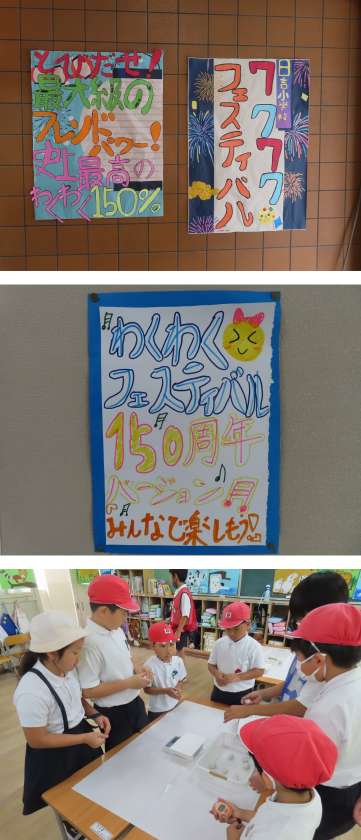 とびだせ!
最大級の
フレンド
パワー!
史上最高の
わくわく150%
日吉小学校
ワクワク
フェスティバル
わくわく
フェスティバル
150周年
バージョン
みんなで楽しもう!